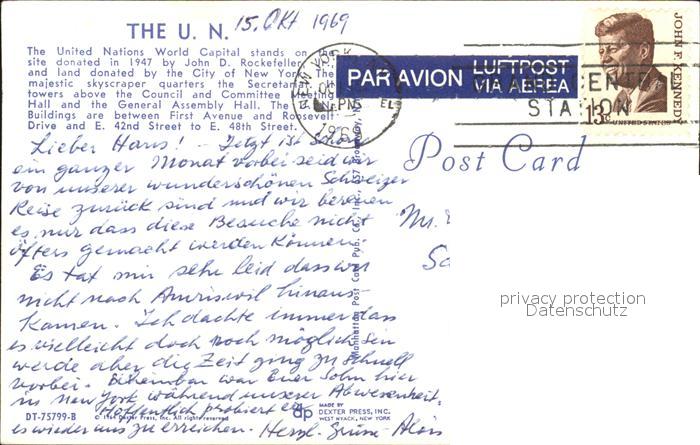 THE U. N.
15. Okt 1969
The United Nations World Capital stands on the
site donated in 1947 by John D. Rockefeller
and land donated by the City of New York. The
majestic skyscraper quarters the Secretariat
towers above the Council and Committee Meeting
Hall and the General Assembly Hall. The
Buildings are between First Avenue and Roosevelt
Drive and E. 42nd Street to E. 48th Street.
NEW YORK
PM
1969
PAR AVION
LUFTPOST
VIA AEREA
STATION
JOHN F. KENNEDY
13c
Post Card
Mr.
Lieber Hans! - Jetzt ist schon
ein ganzer Monat vorbei seid wir
von unserer wunderschönen Schweizer
Reise zurück sind und wir bereuen
es nur dass diese Besuche nicht
öfters gemacht werden können.
Es tat mir sehr leid dass wir
nicht nach Amriswil hinaus-
kamen. Ich dachte immer dass
es vielleicht doch noch möglich sein
werde aber die Zeit ging zu schnell
vorbei. Scheinbar war Euer Sohn hier
in New York während unserer Abwesenheit.
Hoffentlich probiert er
es wieder uns zu erreichen. Herzl. Grüsse Alois
Manhattan Post Card Pub. Co., Inc.
DT-75799-B
Dexter Press, Inc. All rights reserved
dp
MADE BY
DEXTER PRESS, INC.
WEST NYACK, NEW YORK
privacy protection
Datenschutz